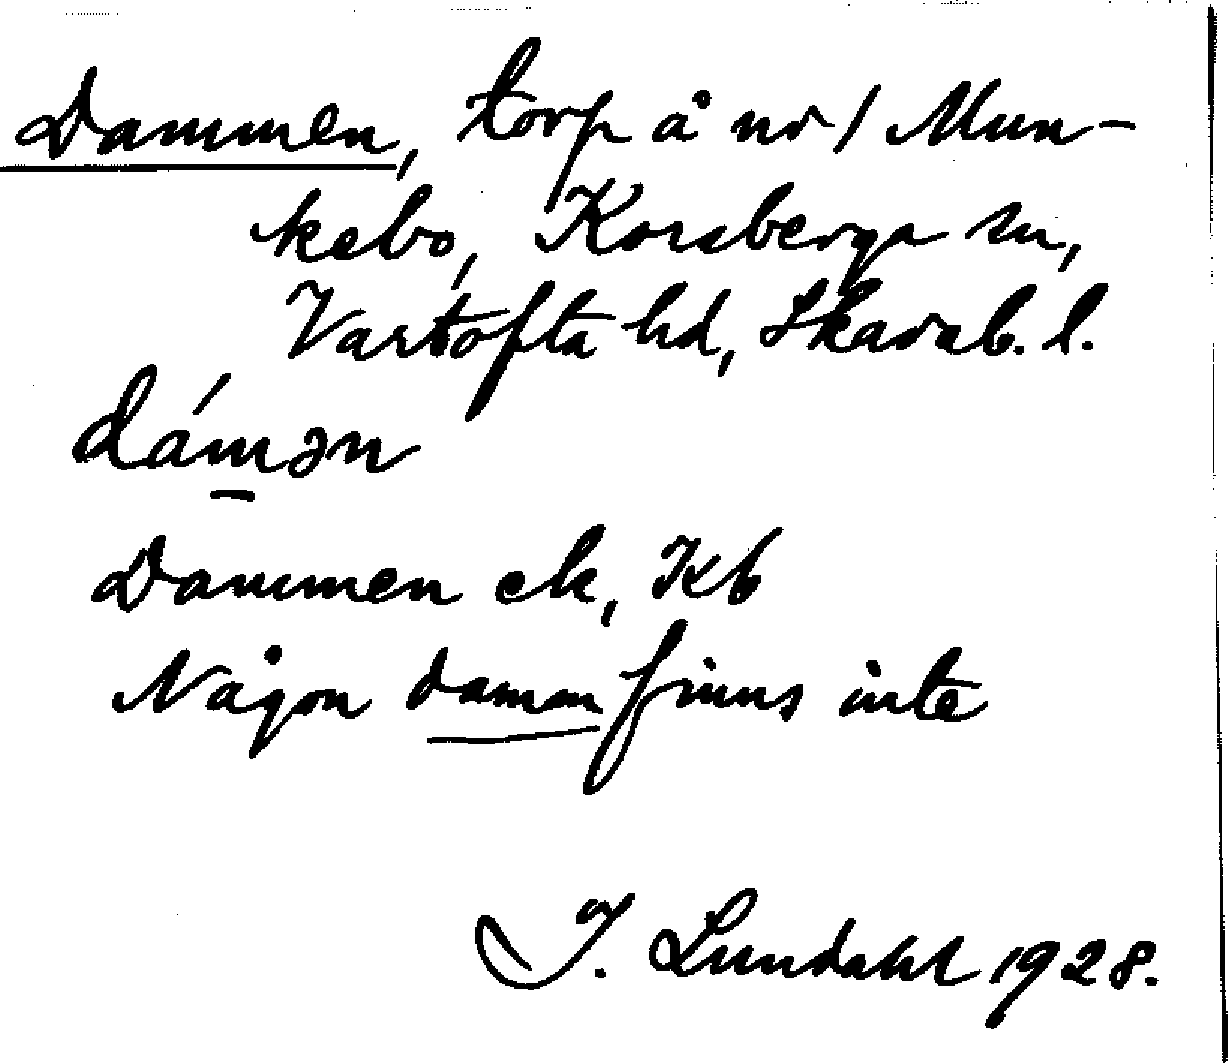 Dammen, torp å nr 1 Mun-
kebo, Korsberga sn,
Vartofta hd, Skarab. l.
dám̱ən
Dammen ek, Kb
Någon damm finns inte
I. Lundahl 1928.